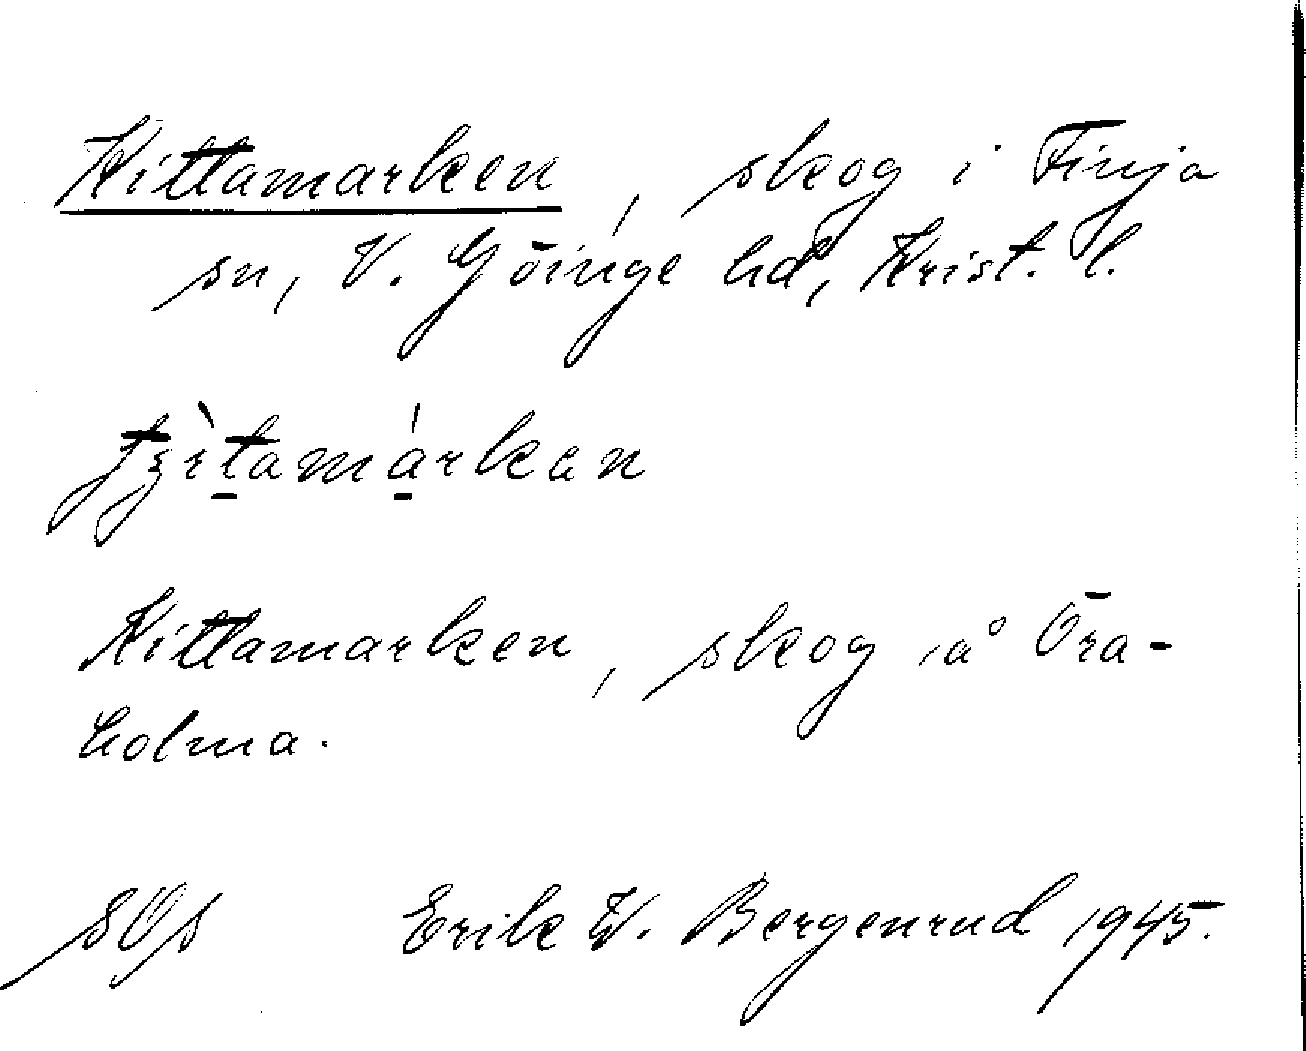 Kittamarken, skog i Finja
sn, V. Göinge hd, Krist. l.
tʒìt̲amá̲rkan
Kittamarken, skog å Öra-
holma.
sOs Erik W. Bergenrud 1945.